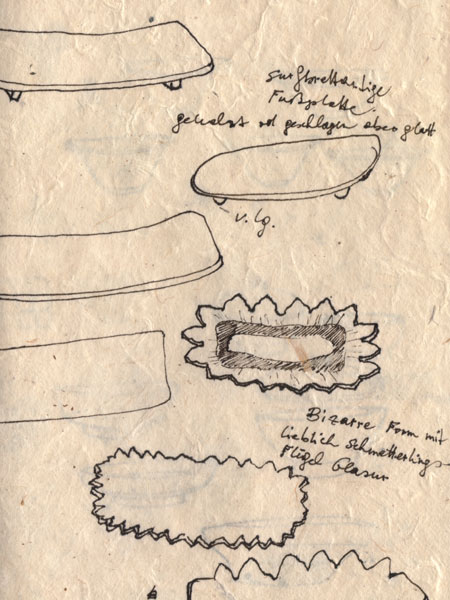 surfbrettartige
Fußplatte.
geschlagen oben glatt
v. lg.
Bizarre Form mit
lieblich Schmetterlings-
Flügel Glasur